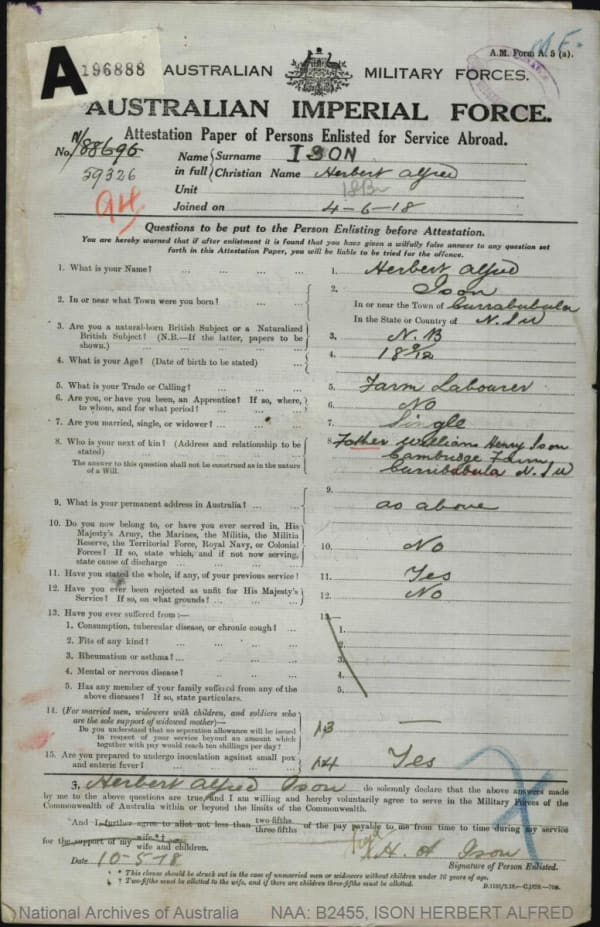 A.M. Form A. 5 (a).
A 196888 AUSTRALIAN MILITARY FORCES.
AUSTRALIAN IMPERIAL FORCE.
Attestation Paper of Persons Enlisted for Service Abroad.
No. N/88696
59326
Name in full { Surname ISON
Christian Name Herbert Alfred
Unit
Joined on 4-6-18
Questions to be put to the Person Enlisting before Attestation.
You are hereby warned that if after enlistment it is found that you have given a wilfully false answer to any question set
forth in this Attestation Paper, you will be liable to be tried for the offence.
1. What is your Name? ... ... ... 1. Herbert Alfred
Ison
2. In or near what Town were you born? ... 2. In or near the Town of Currabubula
In the State or Country of N.S.W
3. Are you a natural-born British Subject or a Naturalized
British Subject? (N.B.—If the latter, papers to be
shown.) ... 3. N. B
4. What is your Age? (Date of birth to be stated) ... 4. 18 9/12
5. What is your Trade or Calling? ... 5. Farm Labourer
6. Are you, or have you been, an Apprentice? If so, where,
to whom, and for what period? ... 6. No
7. Are you married, single, or widower? ... 7. Single
8. Who is your next of kin? (Address and relationship to be
stated) 8. Father William Henry Ison
Cambridge Farm
Curribabula N.S.W
The answer to this question shall not be construed as in the nature
of a Will.
9. What is your permanent address in Australia? ... 9. as above
10. Do you now belong to, or have you ever served in, His
Majesty's Army, the Marines, the Militia, the Militia
Reserve, the Territorial Force, Royal Navy, or Colonial
Forces? If so, state which, and if not now serving,
state cause of discharge ... 10. No
11. Have you stated the whole, if any, of your previous service? 11. Yes
12. Have you ever been rejected as unfit for His Majesty's
Service? If so, on what grounds? ... 12. No
13. Have you ever suffered from:— 13.—
1. Consumption, tubercular disease, or chronic cough? ... 1.
2. Fits of any kind? ... 2.
3. Rheumatism or asthma? ... 3.
4. Mental or nervous disease? ... 4.
5. Has any member of your family suffered from any of the
above diseases? If so, state particulars. 5.
14. (For married men, widowers with children, and soldiers who
are the sole support of widowed mother)—
Do you understand that no separation allowance will be issued
in respect of your service beyond an amount which
together with pay would reach ten shillings per day? 13 —
15. Are you prepared to undergo inoculation against small pox
and enteric fever? 14 Yes
I, Herbert Alfred Ison do solemnly declare that the above answers made
by me to the above questions are true, and I am willing and hereby voluntarily agree to serve in the Military Forces of the
Commonwealth of Australia within or beyond the limits of the Commonwealth.
*And I further agree to allot not less than two-fifths three-fifths of the pay payable to me from time to time during my service
for the support of my wife.*† wife and children.
Date 10-5-18 H. A Ison
Signature of Person Enlisted.
* This clause should be struck out in the case of unmarried men or widowers without children under 16 years of age.
† Two-fifths must be allotted to the wife, and if there are children three-fifths must be allotted.
National Archives of Australia NAA: B2455, ISON HERBERT ALFRED